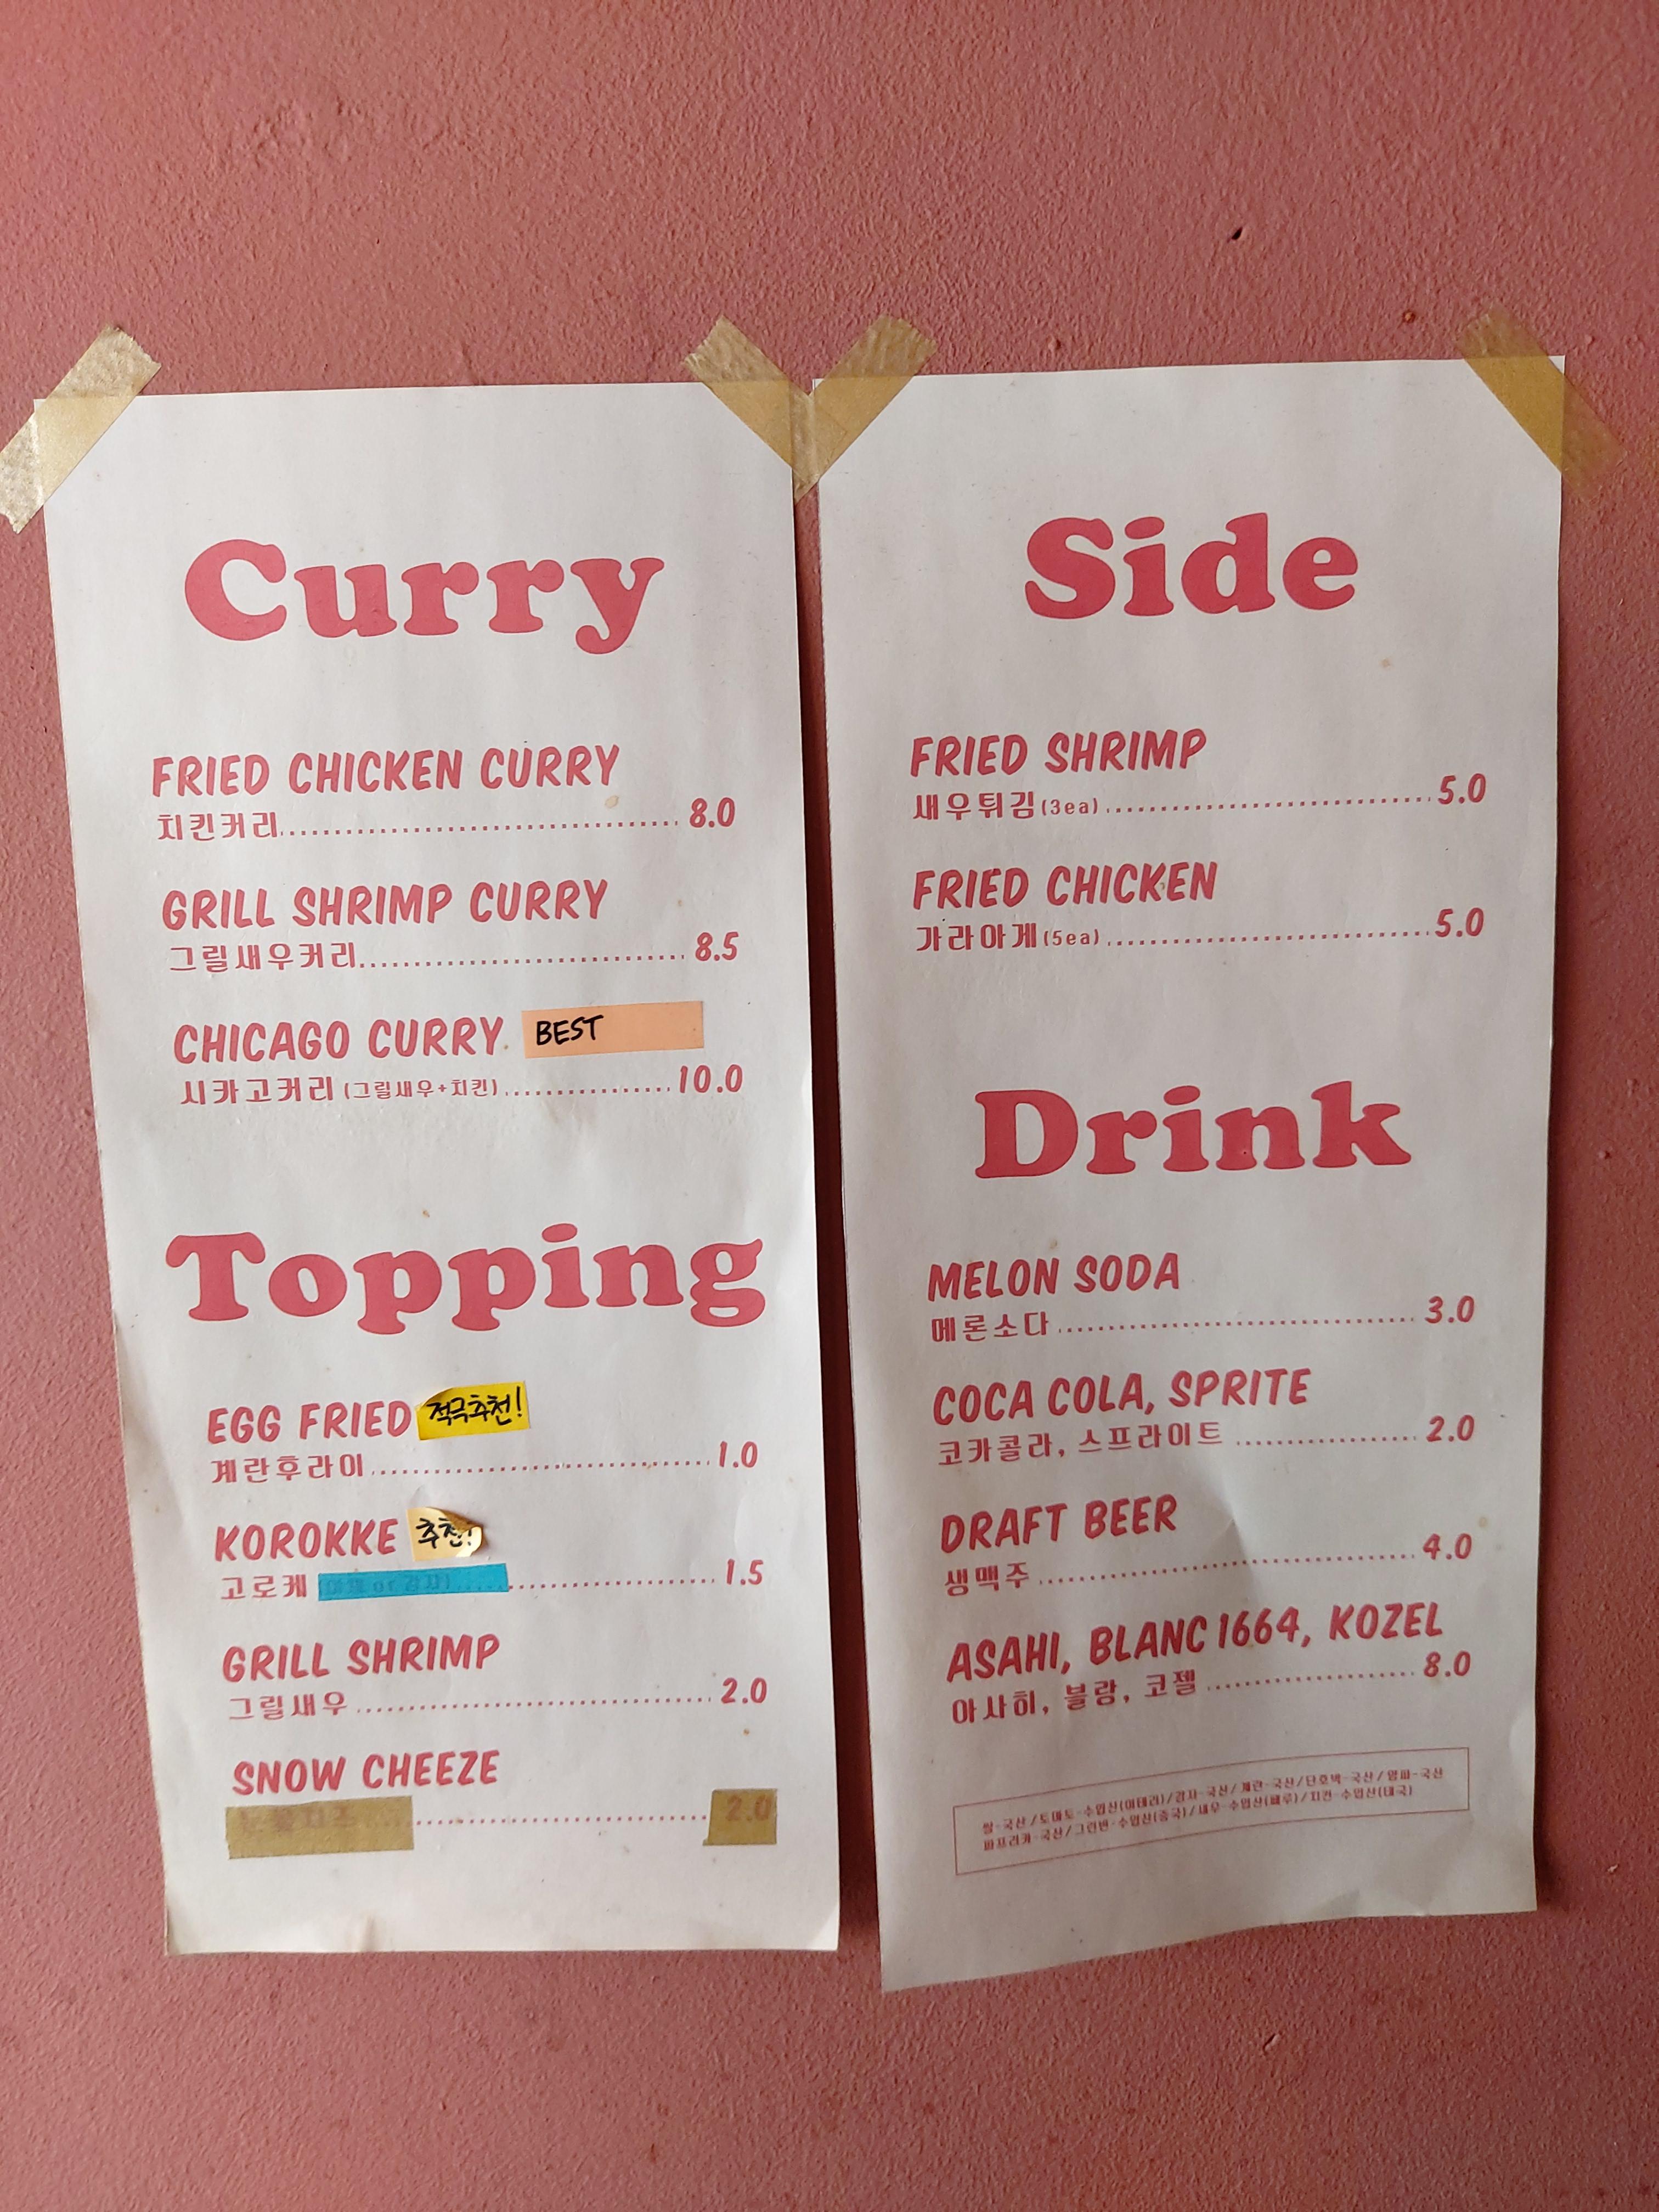 Curry
FRIED CHICKEN CURRY
치킨커리 8.0
GRILL SHRIMP CURRY
그릴새우커리 8.5
CHICAGO CURRY BEST
시카고커리 (그릴새우+치킨) 10.0
Topping
EGG FRIED 적극추천!
계란후라이 1.0
KOROKKE 추천!
고로케 1.5
GRILL SHRIMP
그릴새우 2.0
SNOW CHEEZE
2.0
Side
FRIED SHRIMP
새우튀김 (3ea) 5.0
FRIED CHICKEN
가라아게 (5ea) 5.0
Drink
MELON SODA
메론소다 3.0
COCA COLA, SPRITE
코카콜라, 스프라이트 2.0
DRAFT BEER
생맥주 4.0
ASAHI, BLANC 1664, KOZEL
아사히, 블랑, 코젤 8.0
쌀-국산/토마토-수입산(이태리)/감자-국산/계란-국산/단호박-국산/양파-국산
파프리카-국산/그린빈-수입산(중국)/새우-수입산(페루)/치킨-수입산(태국)